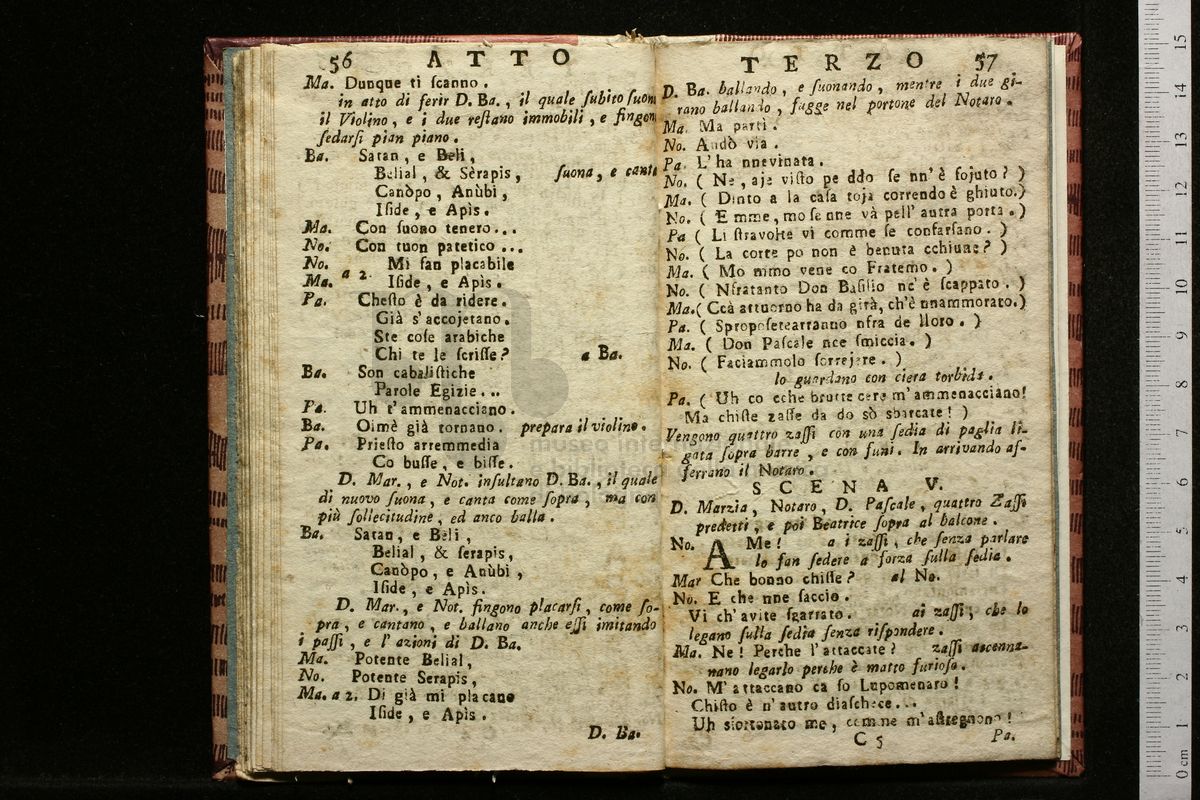 56 ATTO
Ma. Dunque ti ſcanno.
in atto di ferir D. Ba., il quale ſubito ſuon
il Violino, e i due reſtano immobili, e fingon
ſedarſi pian piano.
Ba. Satan, e Beli,
Belial, & Sèrapis, ſuona, e canta
Canòpo, Anùbi,
Iſide, e Apìs.
Ma. Con ſuono tenero...
No. Con tuon patetico...
No. Mi fan placabile
Ma. a 2. Iſide, e Apis.
Pa. Cheſto è da ridere.
Già s'accojetano.
Ste coſe arabiche
Chi te le ſcriſſe? a Ba.
Ba. Son cabaliſtiche
Parole Egizie...
Pa. Uh t'ammenacciano.
Ba. Oimè già tornano. prepara il violino.
Pa. Prieſto arremmedia
Co buſſe, e biſſe.
D. Mar., e Not. inſultano D. Ba., il quale
di nuovo ſuona, e canta come ſopra, ma con
più ſollecitudine, ed anco balla.
Ba. Satan, e Beli,
Belial, & ſerapis,
Canòpo, e Anùbi,
Iſide, e Apìs.
D. Mar., e Not. fingono placarſi, come ſo-
pra, e cantano, e ballano anche eſſi imitando
i paſſi, e l'azioni di D. Ba.
Ma. Potente Belial,
No. Potente Serapis,
Ma. a 2. Di già mi placano
Iſide, e Apìs.
D. Ba.
TERZO 57
D. Ba. ballando, e ſuonando, mentre i due gi-
rano ballando, fugge nel portone del Notaro.
Ma. Ma partì.
No. Andò via.
Pa. L'ha nnevinata.
No. ( Ne, aje viſto pe ddo ſe nn'è fojuto? )
Ma. ( Dinto a la caſa toja correndo è ghiuto.)
No. ( E mme, mo ſe nne và pell'autra porta.)
Pa ( Li ſtravolte vi comme ſe confarſano. )
No. ( La corte po non è benuta cchiune? )
Ma. ( Mo nimo vene co Fratemo. )
No. ( Nfratanto Don Baſilio nc'è ſcappato. )
Ma. ( Ccà attuorno ha da girà, ch'è nnammorato.)
Pa. ( Spropoſetearranno nfra de lloro. )
Ma. ( Don Paſcale nce ſmiccia. )
No. ( Faciammolo ſorrejere. )
lo guardano con ciera torbida.
Pa. ( Uh co cche brutte cere m'ammenacciano!
Ma chiſte zaffe da do sò sbarcate! )
Vengono quattro zaffi con una ſedia di paglia li-
gata ſopra barre, e con funi. In arrivando af-
ferrano il Notaro.
SCENA V.
D. Marzia, Notaro, D. Paſcale, quattro Zaffi
predetti, e poi Beatrice ſopra al balcone.
No. A Me! a i zaffi, che ſenza parlare
lo fan ſedere a forza ſulla ſedia.
Mar Che bonno chiſſe? al No.
No. E che nne ſaccio.
Vi ch'avite ſgarrato. ai zaffi, che lo
legano ſulla ſedia ſenza riſpondere.
Ma. Ne! Perche l'attaccate? zaffi accenna-
nano legarlo perche è matto furioſo.
No. M'attaccano ca ſo Lupomenaro!
Chiſto è n'autro diaſchece...
Uh sfortonato me, comme m'aſtregnono!
C 5 Pa.